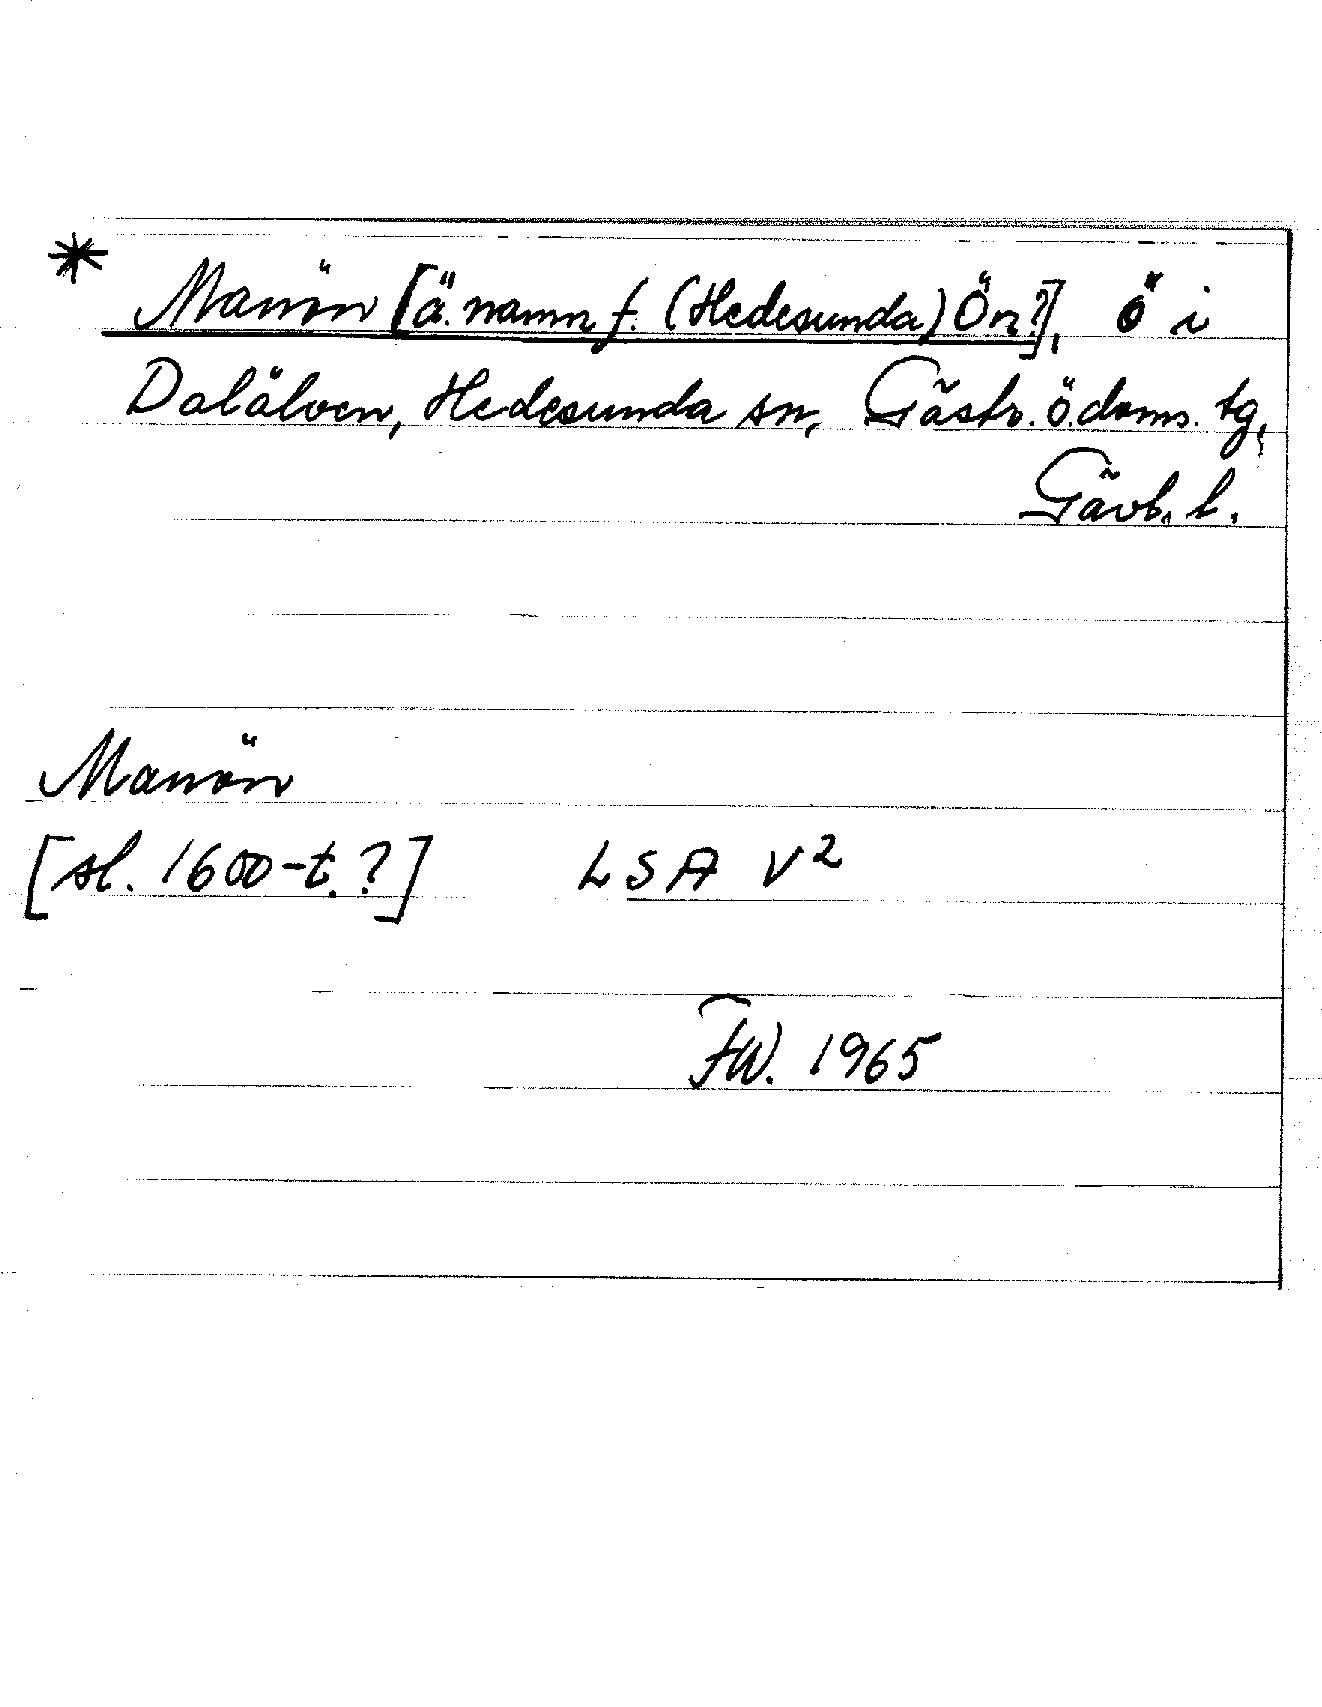 * Manön [ä. namn f. (Hedesunda) Ön?], ö i
Dalälven, Hedesunda sn, Gästr. ö. doms. tg,
Gävb. l.
Manön
[sl. 1600-t.?] LSA V²
FW. 1965